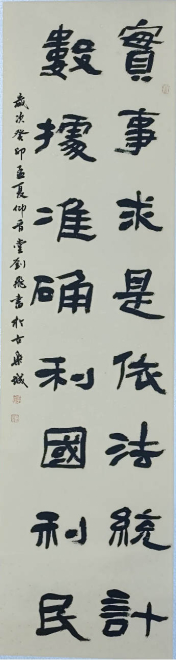 實事求是依法統計
數據准确利國利民
歲次癸卯孟夏仰君堂劉飛書於古樂城